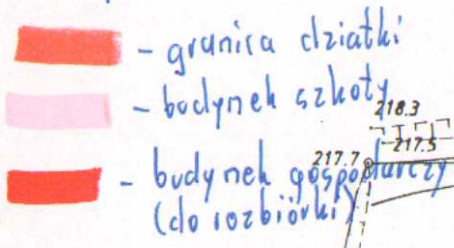 - granica działki
- budynek szkoły
218.3
217.5
217.7
- budynek gospodarczy
(do rozbiórki)